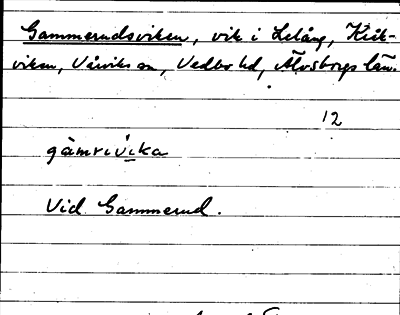 Gammerudsviken, vik i Lelång, Kik-
viken, Vårviks sn, Vedbo hd, Älvsborgs län.
12
gàmrivika
Vid Gammerud.